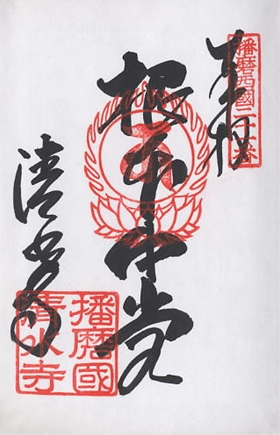 奉拝
播磨西國三十三番
根本中堂
清水寺
播磨國
清水寺